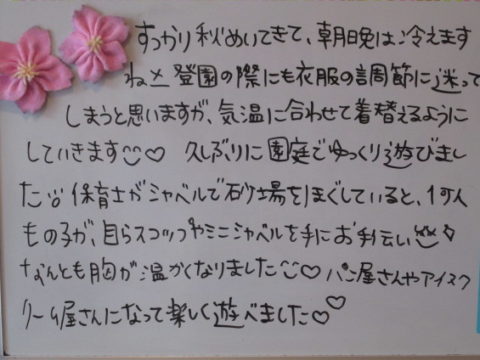 すっかり秋めいてきて、朝晩は冷えます
ね 登園の際にも衣服の調節に迷って
しまうと思いますが、気温に合わせて着替えるように
していきます♡ 久しぶりに園庭でゆっくり遊びまし
た 保育士がシャベルで砂場をほぐしていると、1
もの子が、自らスコップやミニシャベルを手にお手伝い
なんとも胸が温かくなりました♡ パン屋さんやアイスク
リーム屋さんになって楽しく遊べました♡♡